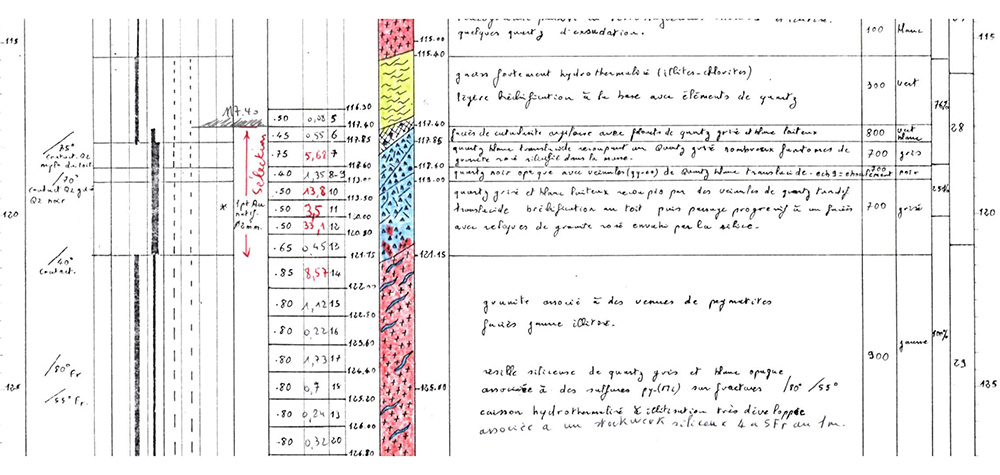 quelques quartz d'exsudation.
100
blanc
115
115
115.00
115.40
gneiss fortement hydrothermalisé (illites-chlorites)
légère bréchification à la base avec éléments de quartz
900
vert
76%
28
117.40
116.90
.50 0,03 5
117.40
117.40
.45 0,55 6
117.85
117.85
faciès de cataclasite argileuse avec filonets de quartz grisé et blanc laiteux
800
vert
blanc
75°
contact. Qz
.75 5,68 7
quartz blanc translucide recoupant un Quartz grisé nombreux fantomes de
granite rosé silicifié dans la masse.
700
gris
118.60
118.60
70°
contact Qz grisé
Qz noir
.40 1,35 8-9
119.00
119.00
quartz noir opaque avec veinules (gyron) de Quartz blanc translucide
noir
25%
Sélection
.50 13,8 10
119.50
quartz grisé et blanc laiteux recoupés par des veinules de quartz tardif
120
120
*
1 pt Au
natif
.50 35 11
120.00
translucide bréchification au toit puis passage progressif à un faciès
700
grisé
.50 33,1 12
120.50
avec reliques de granite rosé envahi par la silice.
.65 0,45 13
121.15
121.15
40°
contact.
.85 8,57 14
122.00
.80 1,12 15
granite associé à des venues de pegmatites
faciès jaune illiteux.
.80 0,22 16
100%
900
jaune
29
.80 1,73 17
124.40
80° Fr
resille siliceuse de quartz gris et blanc opaque
.80 0,7 18
125.00
associée à des sulfures py.(Mi) sur fractures /80° /55°
125
125
55° Fr.
125.20
.80 0,24 19
caisson hydrothermalisé & illitisation très développée
126.00
associée à un stockwerk siliceux 4 à 5 Fr au 1m.
.80 0,32 20
126.80